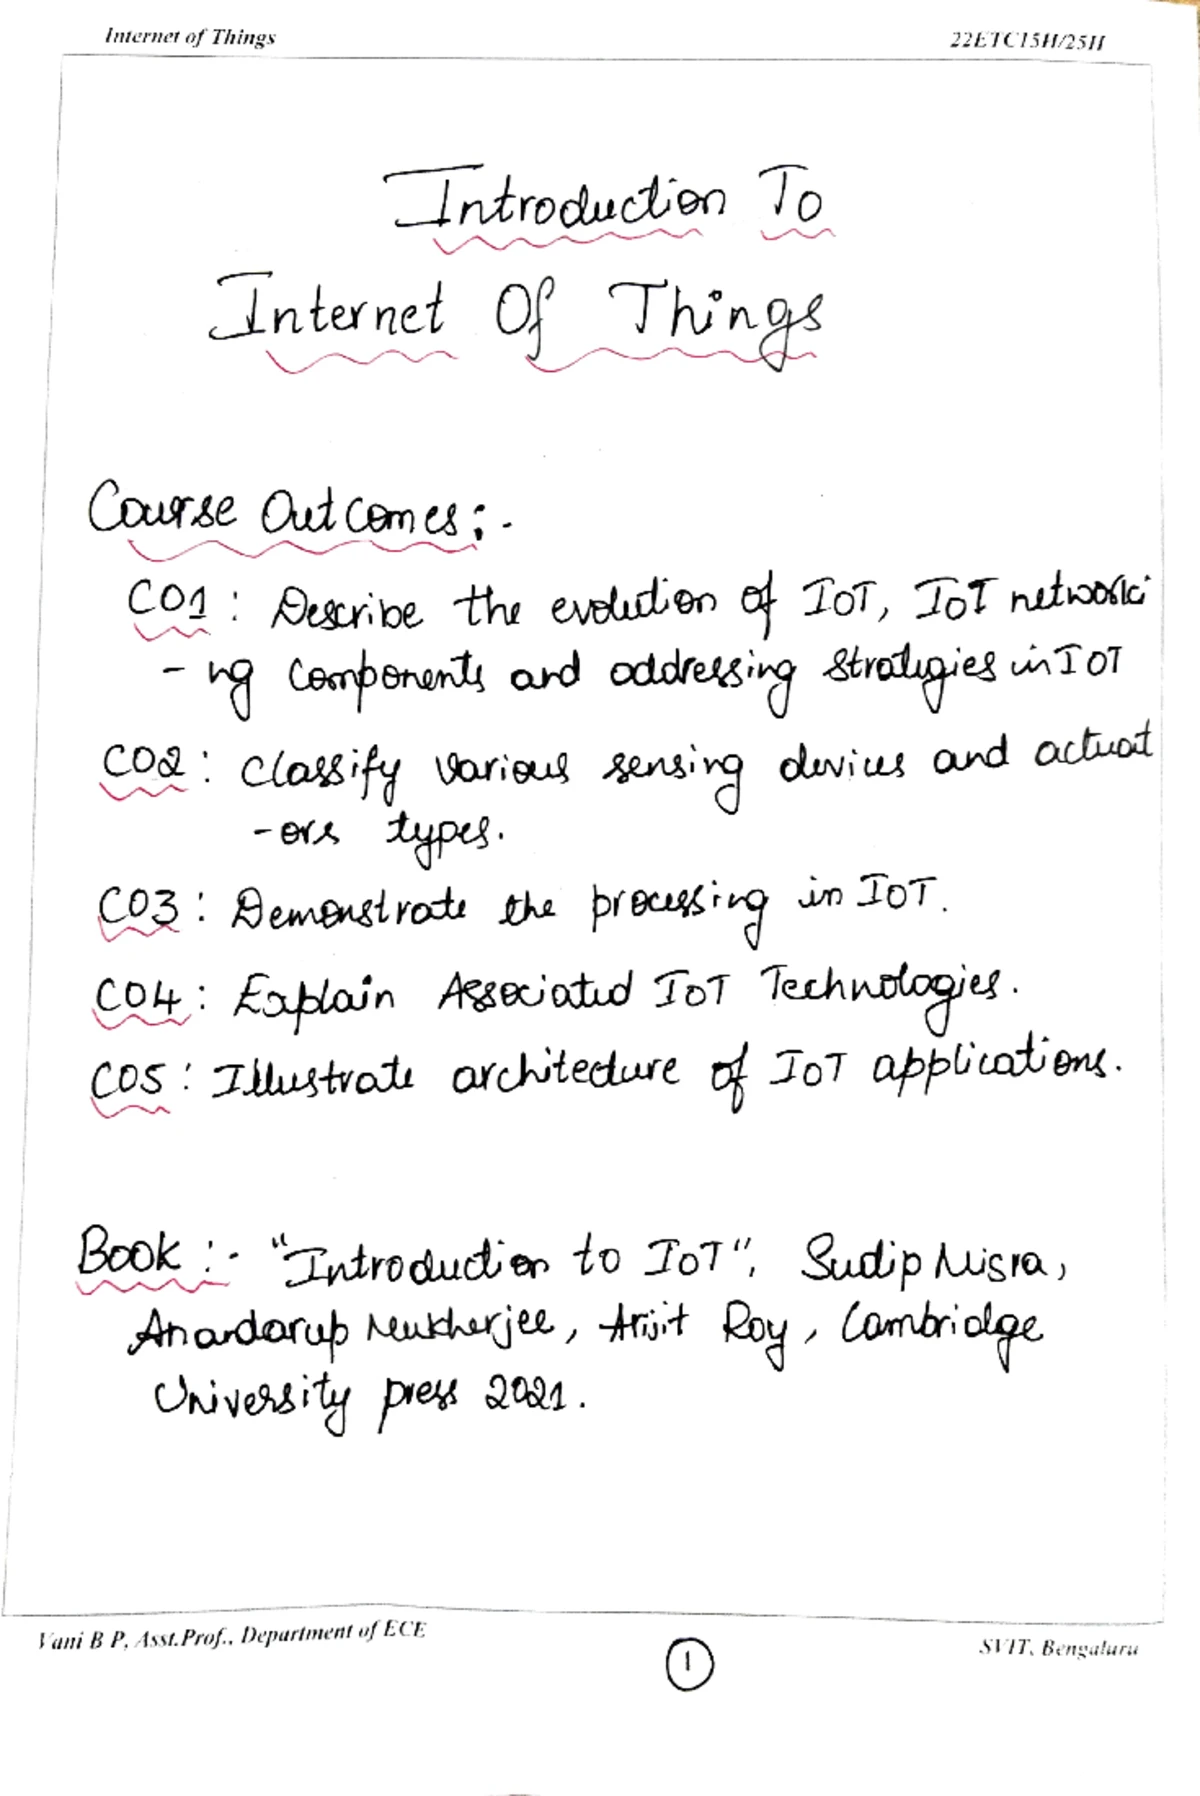 Internet of Things 22ETC15H/25H
Introduction To
Internet Of Things
Course Outcomes:-
CO1: Describe the evolution of IOT, IOT networki
-ng Components and addressing strategies in IOT
CO2: Classify various sensing devices and actuat
-ors types.
CO3: Demonstrate the processing in IOT.
CO4: Explain Associated IOT Technologies.
CO5: Illustrate architecture of IOT applications.
Book:- "Introduction to IOT", Sudip Misra,
Anandarup Mukherjee, Arijit Roy, Cambridge
University press 2021.
Vani B P, Asst.Prof., Department of ECE SVIT, Bengaluru
1